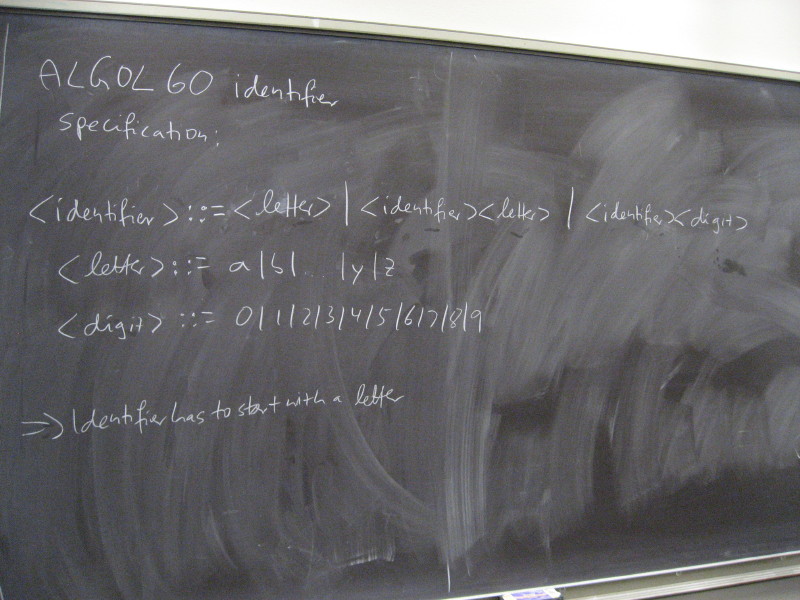 ALGOL 60 identifier
specification:
<identifier> ::= <letter> | <identifier><letter> | <identifier><digit>
<letter> ::= a|b| ... |y|z
<digit> ::= 0|1|2|3|4|5|6|7|8|9
=> Identifier has to start with a letter